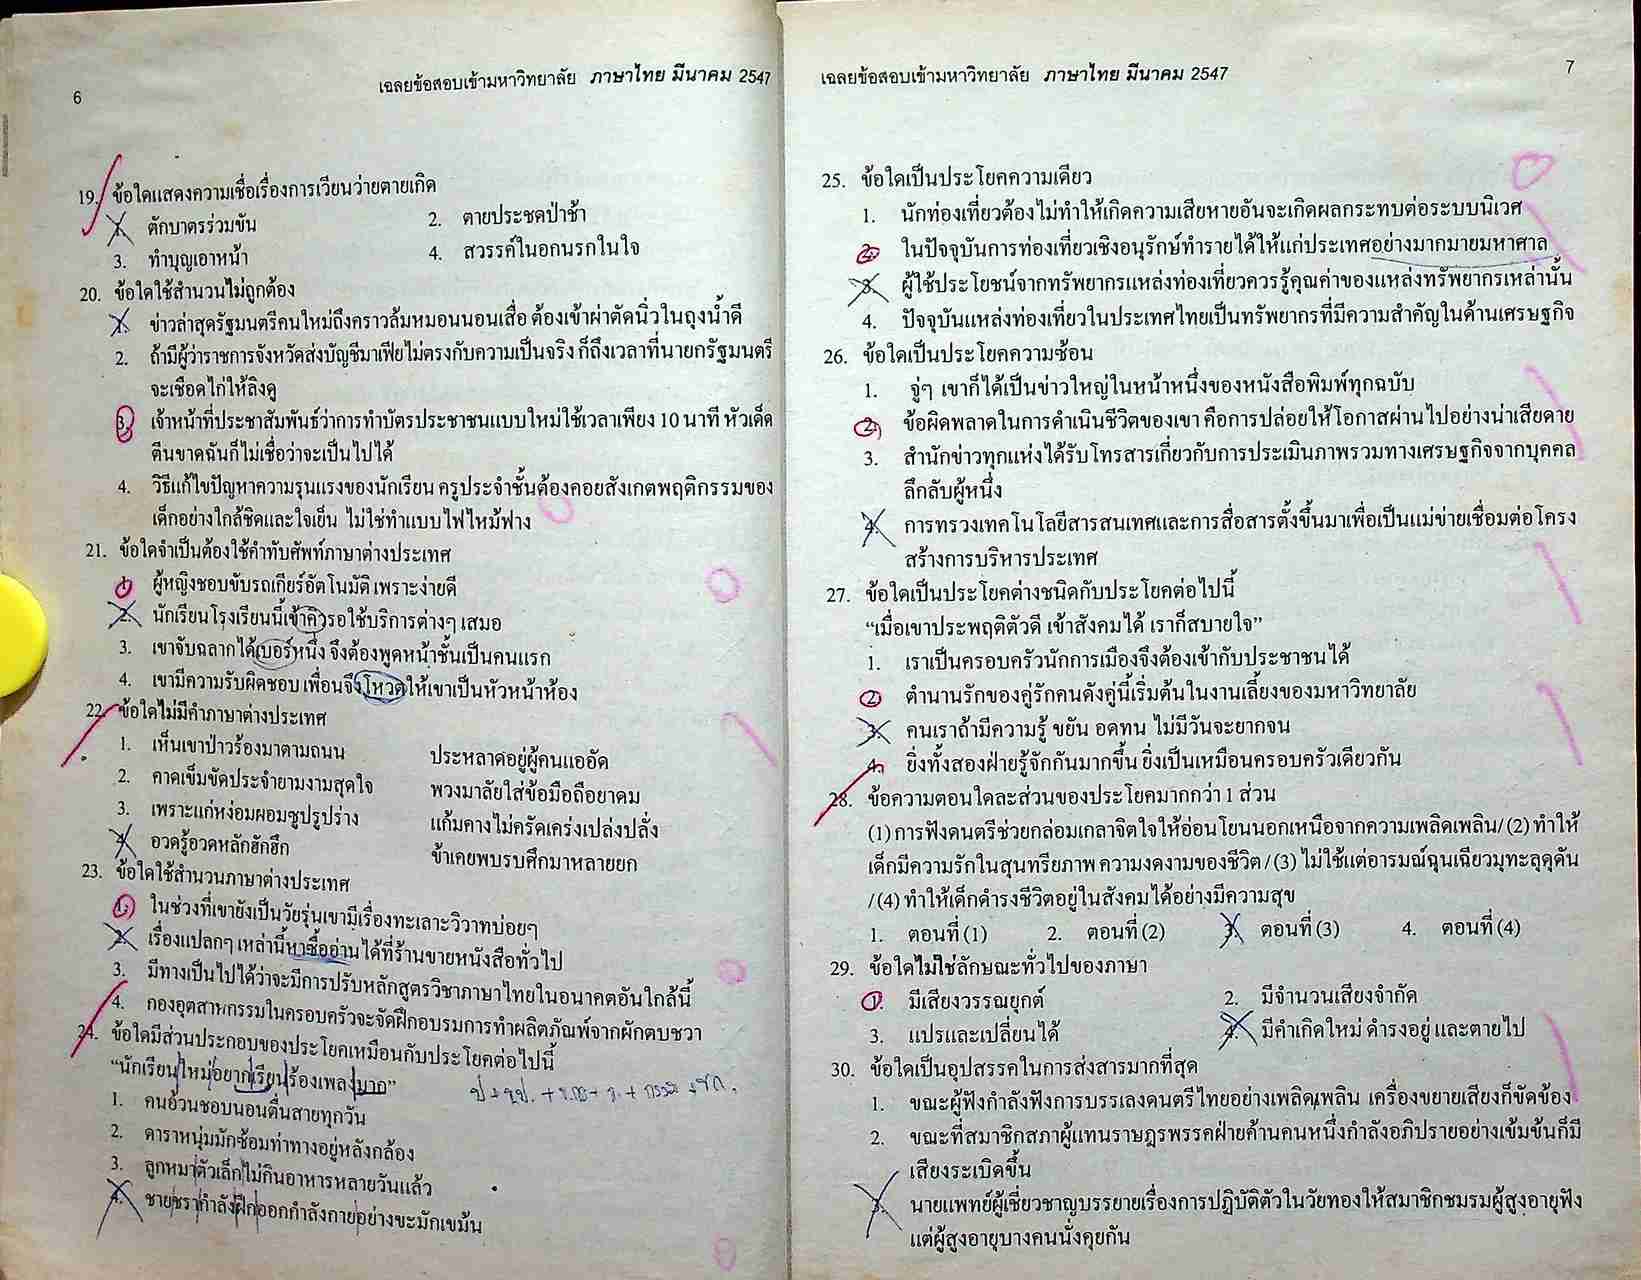 6
เฉลยข้อสอบเข้ามหาวิทยาลัย ภาษาไทย มีนาคม 2547
19. ข้อใดแสดงความเชื่อเรื่องการเวียนว่ายตายเกิด
1. ตักบาตรร่วมขัน 2. ตายประชดป่าช้า
3. ทำบุญเอาหน้า 4. สวรรค์ในอกนรกในใจ
20. ข้อใดใช้สำนวนไม่ถูกต้อง
1. ข่าวล่าสุดรัฐมนตรีคนใหม่ถึงคราวล้มหมอนนอนเสื่อ ต้องเข้าผ่าตัดนิ่วในถุงน้ำดี
2. ถ้ามีผู้ว่าราชการจังหวัดส่งบัญชีมาเฟียไม่ตรงกับความเป็นจริง ก็ถึงเวลาที่นายกรัฐมนตรี
จะเชือดไก่ให้ลิงดู
3. เจ้าหน้าที่ประชาสัมพันธ์ว่าการทำบัตรประชาชนแบบใหม่ใช้เวลาเพียง 10 นาที หัวเด็ด
ตีนขาดฉันก็ไม่เชื่อว่าจะเป็นไปได้
4. วิธีแก้ไขปัญหาความรุนแรงของนักเรียน ครูประจำชั้นต้องคอยสังเกตพฤติกรรมของ
เด็กอย่างใกล้ชิดและใจเย็น ไม่ใช่ทำแบบไฟไหม้ฟาง
21. ข้อใดจำเป็นต้องใช้คำทับศัพท์ภาษาต่างประเทศ
1. ผู้หญิงชอบขับรถเกียร์อัตโนมัติ เพราะง่ายดี
2. นักเรียนโรงเรียนนี้เข้าคิวรอใช้บริการต่างๆ เสมอ
3. เขาจับฉลากได้เบอร์หนึ่ง จึงต้องพูดหน้าชั้นเป็นคนแรก
4. เขามีความรับผิดชอบ เพื่อนจึงโหวตให้เขาเป็นหัวหน้าห้อง
22. ข้อใดไม่มีคำภาษาต่างประเทศ
1. เห็นเขาป่าวร้องมาตามถนน ประหลาดอยู่ผู้คนแออัด
2. คาดเข็มขัดประจำยามงามสุดใจ พวงมาลัยใส่ข้อมือถือยาดม
3. เพราะแก่หง่อมผอมซูปรูปร่าง แก้มคางไม่ครัดเคร่งเปล่งปลั่ง
4. อวดรู้อวดหลักฮักฮึก ข้าเคยพบรบศึกมาหลายยก
23. ข้อใดใช้สำนวนภาษาต่างประเทศ
1. ในช่วงที่เขายังเป็นวัยรุ่นเขามีเรื่องทะเลาะวิวาทบ่อยๆ
2. เรื่องแปลกๆ เหล่านี้หาซื้ออ่านได้ที่ร้านขายหนังสือทั่วไป
3. มีทางเป็นไปได้ว่าจะมีการปรับหลักสูตรวิชาภาษาไทยในอนาคตอันใกล้นี้
4. กองอุตสาหกรรมในครอบครัวจะจัดฝึกอบรมการทำผลิตภัณฑ์จากผักตบชวา
24. ข้อใดมีส่วนประกอบของประโยคเหมือนกับประโยคต่อไปนี้
“นักเรียนใหม่อยากเรียนร้องเพลงมาก”
1. คนอ้วนชอบนอนตื่นสายทุกวัน
2. ดาราหนุ่มมักซ้อมท่าทางอยู่หลังกล้อง
3. ลูกหมาตัวเล็กไม่กินอาหารหลายวันแล้ว
4. ชายชรากำลังฝึกออกกำลังกายอย่างขะมักเขม้น
เฉลยข้อสอบเข้ามหาวิทยาลัย ภาษาไทย มีนาคม 2547
7
25. ข้อใดเป็นประโยคความเดียว
1. นักท่องเที่ยวต้องไม่ทำให้เกิดความเสียหายอันจะเกิดผลกระทบต่อระบบนิเวศ
2. ในปัจจุบันการท่องเที่ยวเชิงอนุรักษ์ทำรายได้ให้แก่ประเทศอย่างมากมายมหาศาล
3. ผู้ใช้ประโยชน์จากทรัพยากรแหล่งท่องเที่ยวควรรู้คุณค่าของแหล่งทรัพยากรเหล่านั้น
4. ปัจจุบันแหล่งท่องเที่ยวในประเทศไทยเป็นทรัพยากรที่มีความสำคัญในด้านเศรษฐกิจ
26. ข้อใดเป็นประโยคความซ้อน
1. จู่ๆ เขาก็ได้เป็นข่าวใหญ่ในหน้าหนึ่งของหนังสือพิมพ์ทุกฉบับ
2. ข้อผิดพลาดในการดำเนินชีวิตของเขา คือการปล่อยให้โอกาสผ่านไปอย่างน่าเสียดาย
3. สำนักข่าวทุกแห่งได้รับโทรสารเกี่ยวกับการประเมินภาพรวมทางเศรษฐกิจจากบุคคล
ลึกลับผู้หนึ่ง
4. การทรวงเทคโนโลยีสารสนเทศและการสื่อสารตั้งขึ้นมาเพื่อเป็นแม่ข่ายเชื่อมต่อโครง
สร้างการบริหารประเทศ
27. ข้อใดเป็นประโยคต่างชนิดกับประโยคต่อไปนี้
“เมื่อเขาประพฤติตัวดี เข้าสังคมได้ เราก็สบายใจ”
1. เราเป็นครอบครัวนักการเมืองจึงต้องเข้ากับประชาชนได้
2. ตำนานรักของคู่รักคนดังคู่นี้เริ่มต้นในงานเลี้ยงของมหาวิทยาลัย
3. คนเราถ้ามีความรู้ ขยัน อดทน ไม่มีวันจะยากจน
4. ยิ่งทั้งสองฝ่ายรู้จักกันมากขึ้น ยิ่งเป็นเหมือนครอบครัวเดียวกัน
28. ข้อความตอนใดละส่วนของประโยคมากกว่า 1 ส่วน
(1) การฟังดนตรีช่วยกล่อมเกลาจิตใจให้อ่อนโยนนอกเหนือจากความเพลิดเพลิน/ (2) ทำให้
เด็กมีความรักในสุนทรียภาพ ความงดงามของชีวิต / (3) ไม่ใช้แต่อารมณ์ฉุนเฉียวมุทะลุดุดัน
/ (4) ทำให้เด็กดำรงชีวิตอยู่ในสังคมได้อย่างมีความสุข
1. ตอนที่ (1) 2. ตอนที่ (2) 3. ตอนที่ (3) 4. ตอนที่ (4)
29. ข้อใดไม่ใช่ลักษณะทั่วไปของภาษา
1. มีเสียงวรรณยุกต์ 2. มีจำนวนเสียงจำกัด
3. แปรและเปลี่ยนได้ 4. มีคำเกิดใหม่ ดำรงอยู่ และตายไป
30. ข้อใดเป็นอุปสรรคในการส่งสารมากที่สุด
1. ขณะผู้ฟังกำลังฟังการบรรเลงดนตรีไทยอย่างเพลิดเพลิน เครื่องขยายเสียงก็ขัดข้อง
2. ขณะที่สมาชิกสภาผู้แทนราษฎรพรรคฝ่ายค้านคนหนึ่งกำลังอภิปรายอย่างเข้มข้นก็มี
เสียงระเบิดขึ้น
3. นายแพทย์ผู้เชี่ยวชาญบรรยายเรื่องการปฏิบัติตัวในวัยทองให้สมาชิกชมรมผู้สูงอายุฟัง
แต่ผู้สูงอายุบางคนนั่งคุยกัน